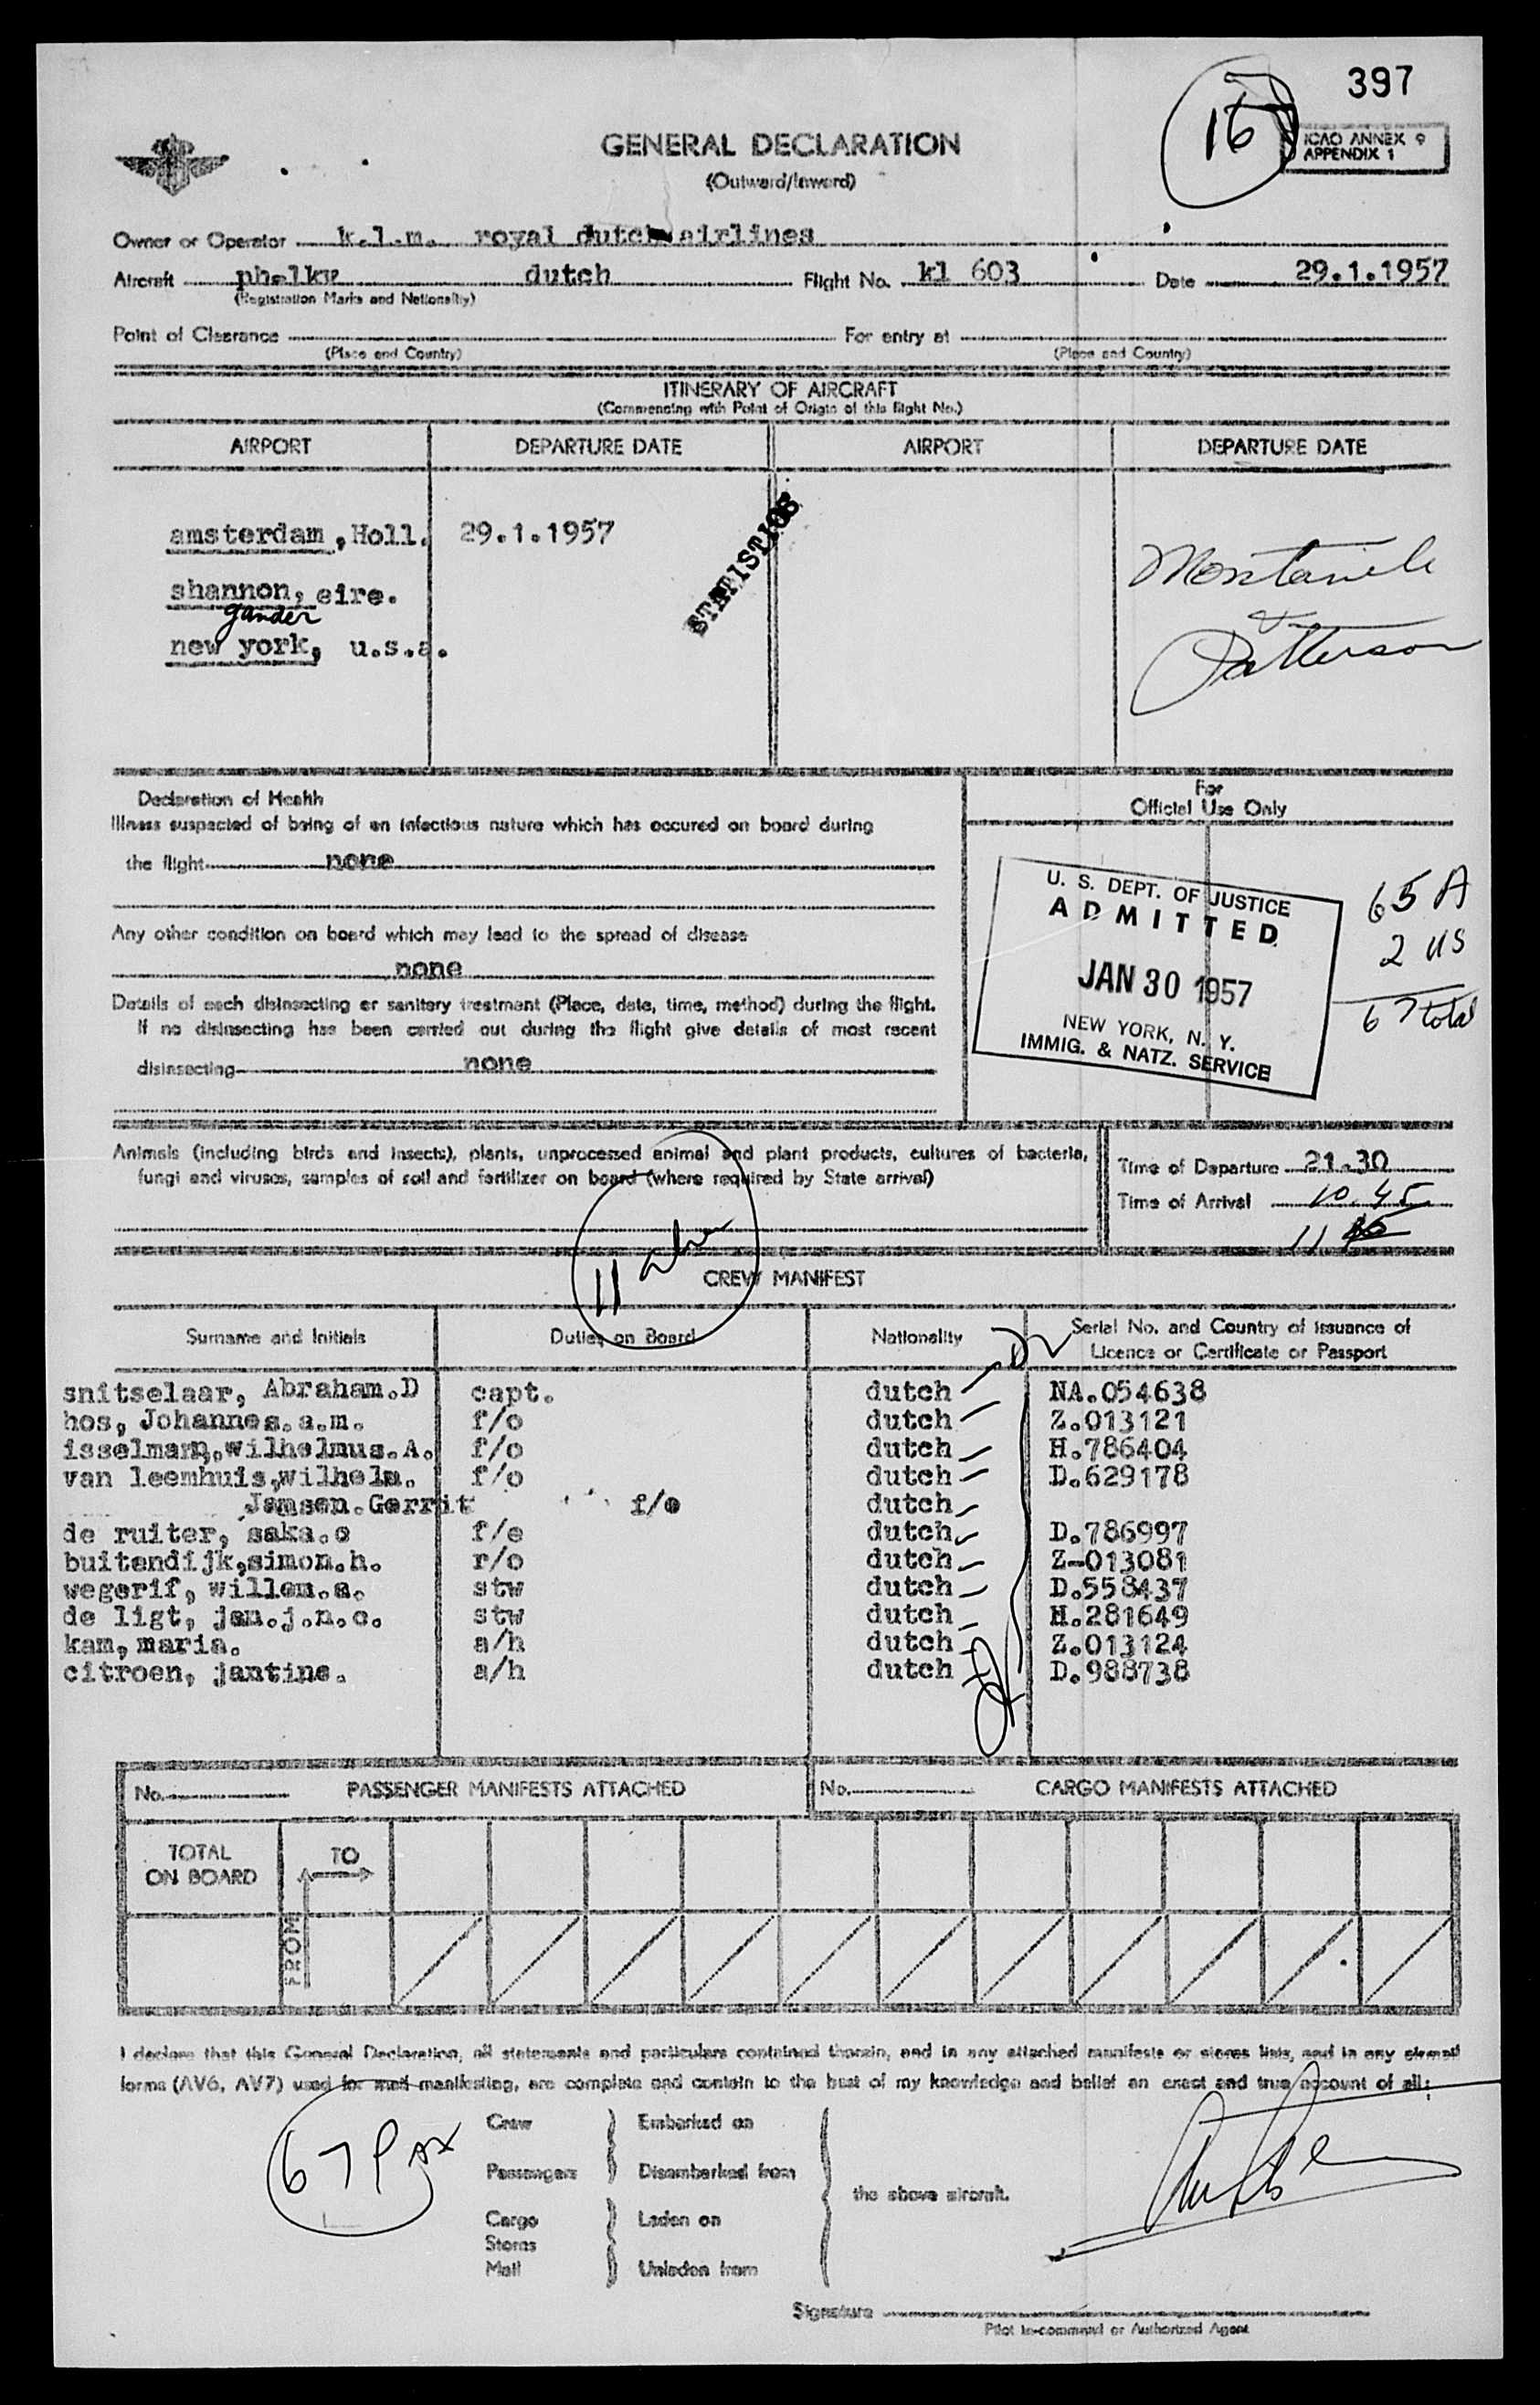 397
16
ICAO ANNEX 9
APPENDIX 1
GENERAL DECLARATION
(Outward/Inward)
Owner or Operator k.l.m. royal dutch airlines
Aircraft ph-lkv dutch Flight No. kl 603 Date 29.1.1957
(Registration Marks and Nationality)
Point of Clearance For entry at
(Place and Country) (Place and Country)
ITINERARY OF AIRCRAFT
(Commencing with Point of Origin of this flight No.)
AIRPORT DEPARTURE DATE AIRPORT DEPARTURE DATE
STATISTICS
amsterdam, Holl. 29.1.1957
shannon, eire.
gander
new york, u.s.a.
&
Patterson
Declaration of Health
Illness suspected of being of an infectious nature which has occured on board during
the flight none
Any other condition on board which may lead to the spread of disease
none
Details of each disinsecting or sanitary treatment (Place, date, time, method) during the flight.
If no disinsecting has been carried out during the flight give details of most recent
disinsecting none
For
Official Use Only
U. S. DEPT. OF JUSTICE
ADMITTED
JAN 30 1957
NEW YORK, N. Y.
IMMIG. & NATZ. SERVICE
65 A
2 US
67 total
Animals (including birds and insects), plants, unprocessed animal and plant products, cultures of bacteria,
fungi and viruses, samples of soil and fertilizer on board (where required by State arrival)
Time of Departure 21.30
Time of Arrival 10.45
11
11
CREW MANIFEST
Surname and Initials Duties on Board Nationality Serial No. and Country of issuance of
Licence or Certificate or Passport
snitselaar, Abraham.D capt. dutch NA.054638
hos, Johannes.a.m. f/o dutch Z.013121
isselmann,wilhelmus.A. f/o dutch H.786404
van leemhuis,wilhelm. f/o dutch D.629178
Jansen.Gerrit f/e dutch
de ruiter, saka.o f/e dutch D.786997
buitendijk,simon.h. r/o dutch Z-013081
wegerif, willem.a. stw dutch D.558437
de ligt, jan.j.n.c. stw dutch H.281649
kam, maria. a/h dutch Z.013124
citroen, jantine. a/h dutch D.988738
No. PASSENGER MANIFESTS ATTACHED No. CARGO MANIFESTS ATTACHED
TOTAL
ON BOARD
TO
FROM
I declare that this General Declaration, all statements and particulars contained therein, and in any attached manifests or stores lists, and in any airmail
forms (AV6, AV7) used for mail manifesting, are complete and contain to the best of my knowledge and belief an exact and true account of all:
67 Pax
Crew Embarked on
Passengers Disembarked from
the above aircraft.
Cargo Laden on
Stores
Mail Unladen from
Signature
Pilot in-command or Authorized Agent